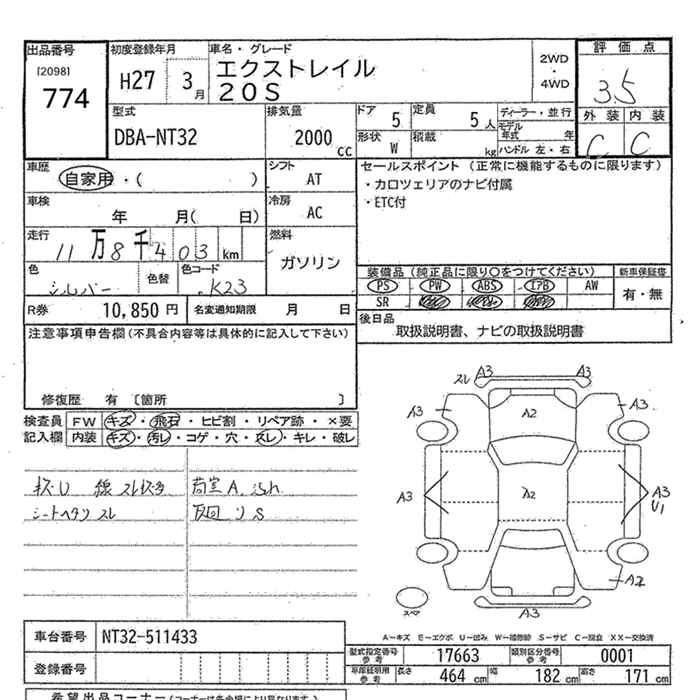 出品番号
[2098]
774
初度登録年月
H27 3月
車名・グレード
エクストレイル
20S
2WD
・
4WD
評価点
3.5
外装 内装
C C
型式
DBA-NT32
排気量
2000 cc
ドア 5
定員 5人
形状 W
積載 kg
ディーラー・並行
モデル年式 年
ハンドル 左・右
車歴
自家用・( )
車検
年 月( 日)
走行
11万8千403km
色
シルバー
色替
色コード
K23
シフト
AT
冷房
AC
燃料
ガソリン
セールスポイント (正常に機能するものに限ります)
・カロツェリアのナビ付属
・ETC付
装備品(純正品に限り○をつけてください)
PS PW ABS エアB AW
SR
新車保証書
有・無
R券 10,850 円
名変通知期限 月 日
後日品
取扱説明書、ナビの取扱説明書
注意事項申告欄(不具合内容等は具体的に記入して下さい)
修復歴 有 〔箇所 〕
検査員記入欄
FW キズ・飛石・ヒビ割・リペア跡・×要
内装 キズ・汚レ・コゲ・穴・スレ・キレ・破レ
シートヘタリ スレ
荷室 A.
スレ A3 A3
A3 A3
A2
A3 A2 A3
U1
A2
スペア
A3
A-キズ E-エクボ U-凹み W-補修跡 S-サビ C-腐食 XX-交換済
車台番号 NT32-511433
登録番号
型式指定番号 参考 17663
類別区分番号 参考 0001
車庫証明用 参考 長さ 464 cm 幅 182 cm 高さ 171 cm
希望出品コーナー